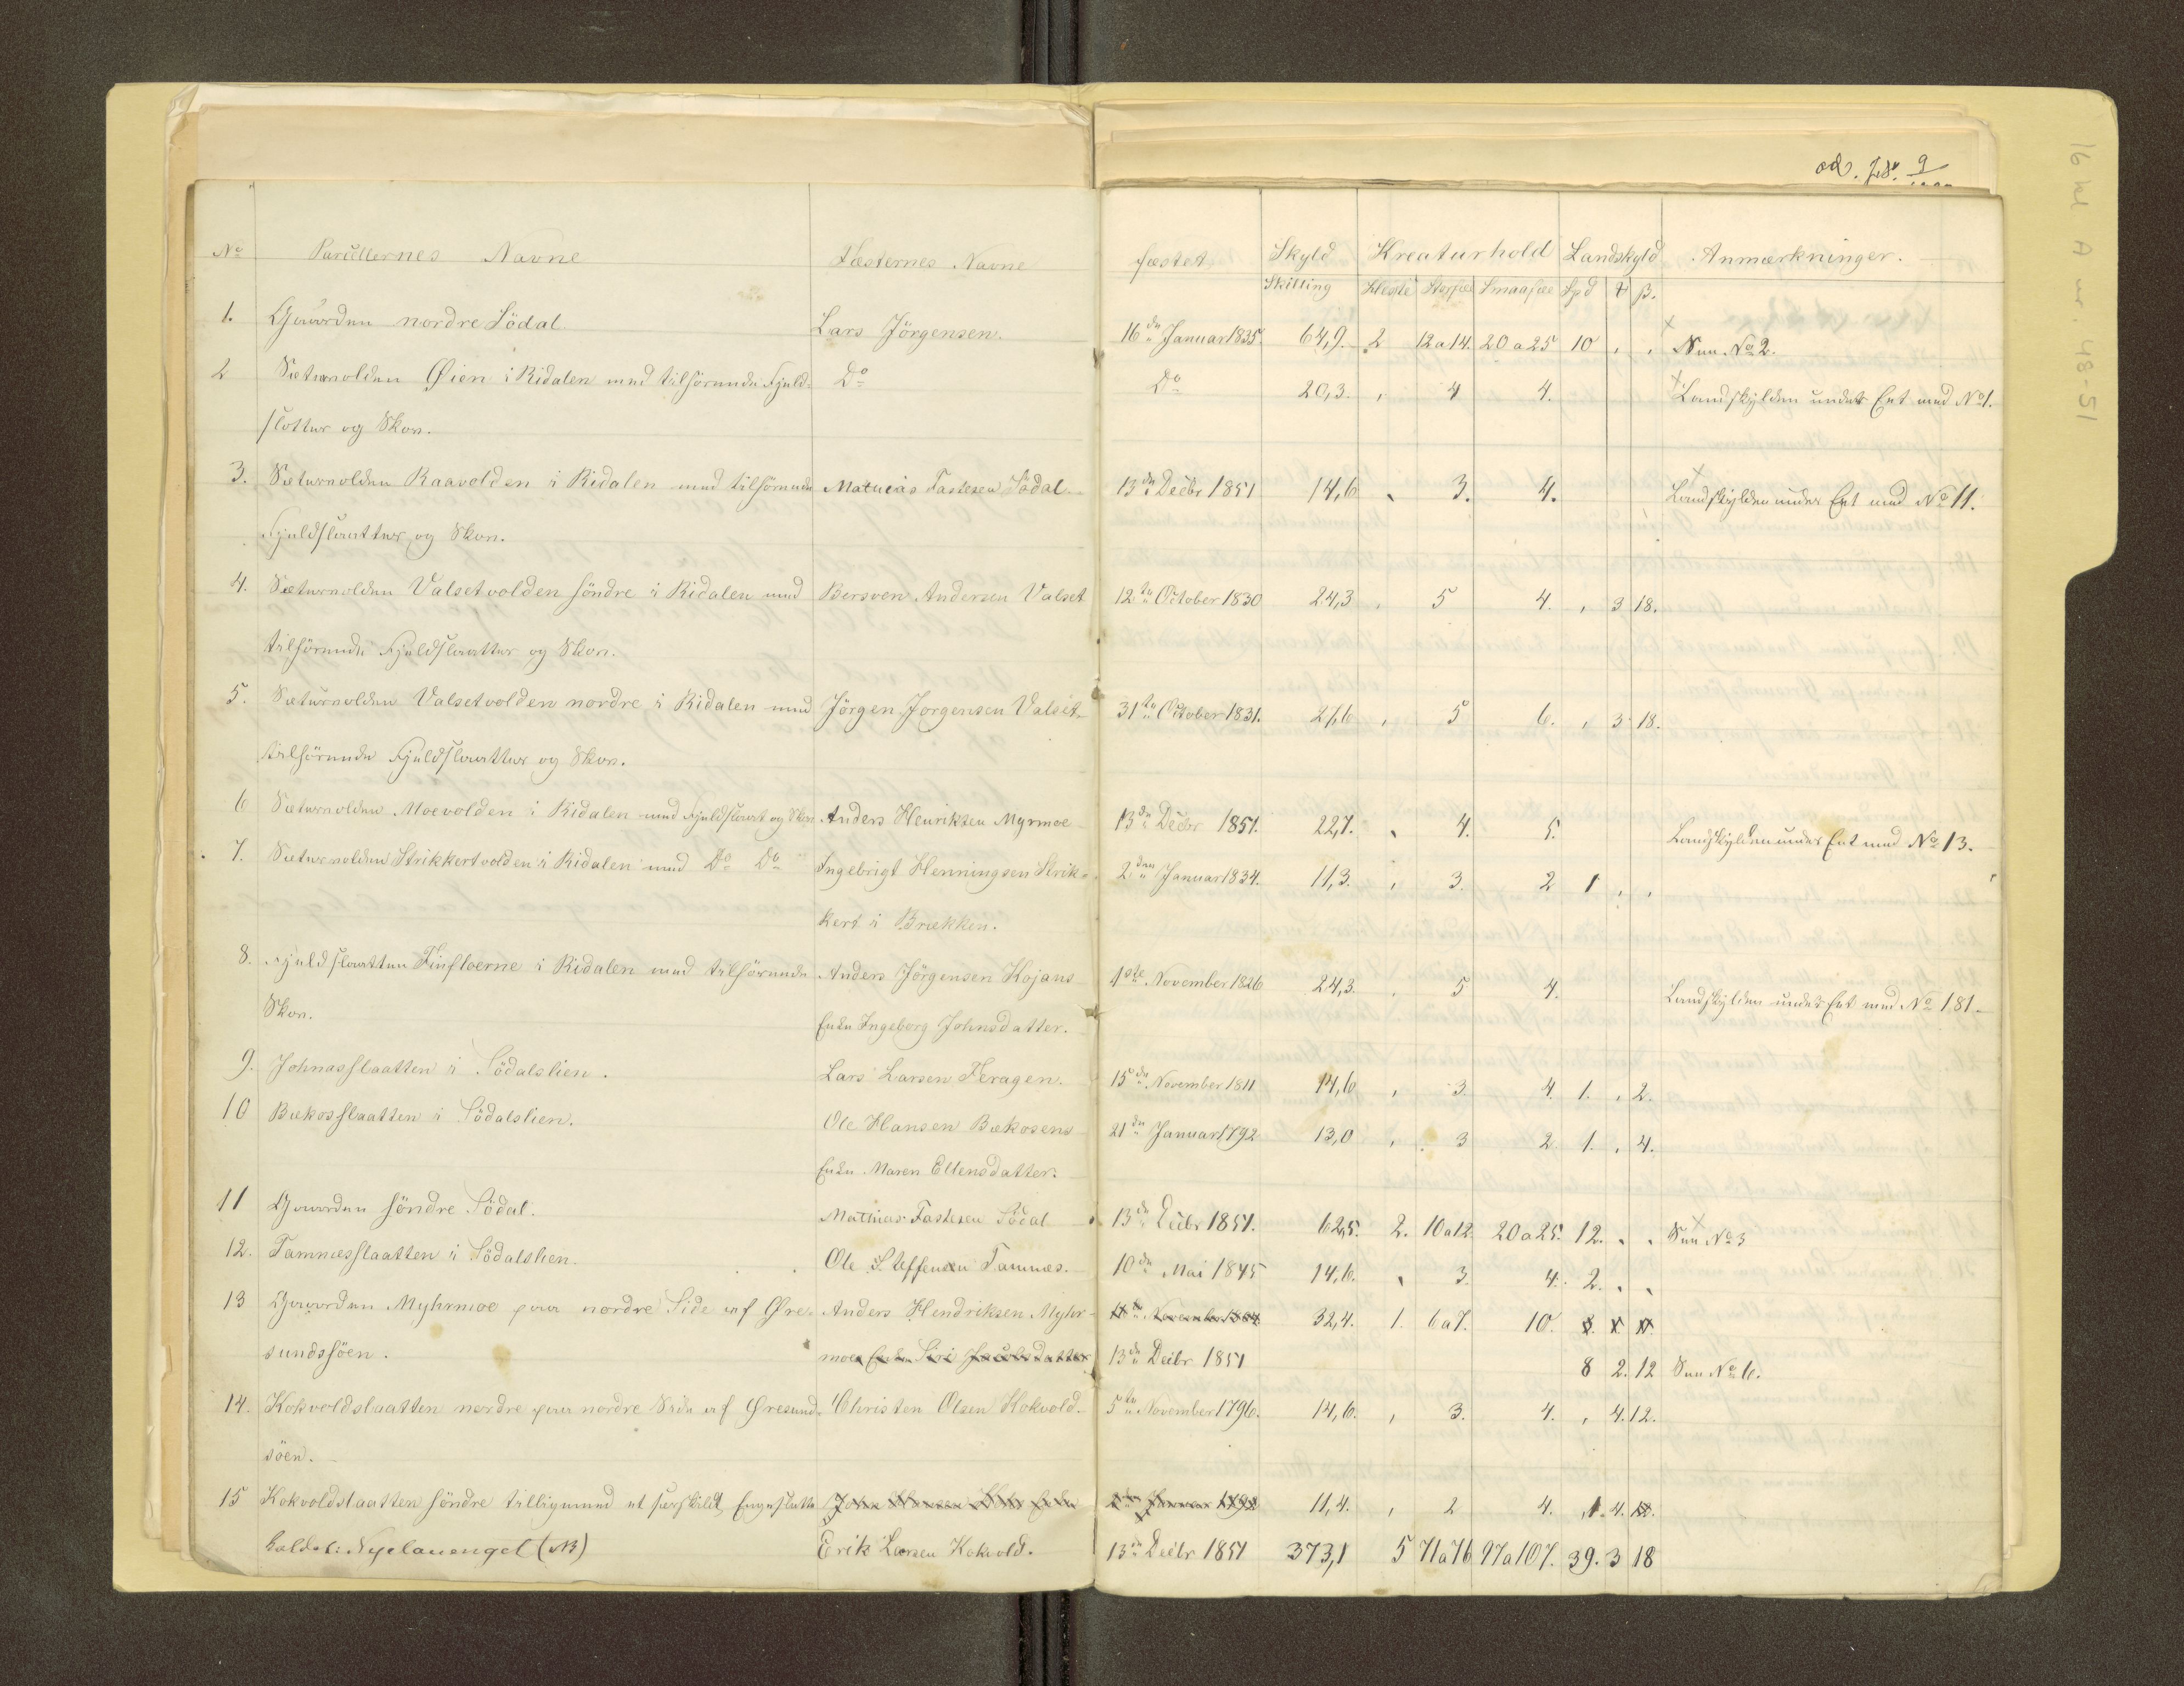 od. Jd. 9
16 hl A nr. 48-51
No Parcellernes Navne Fæsternes Navne fæstet Skyld Kreaturhold Landskyld Anmærkninger.
Skilling Heste Storfæe Smaafæe Spd ß.
1. Gaarden nordre Södal Lars Jörgensen. 16de Januar 1835. 64,9. 2 12 a 14. 20 a 25 10 , , See No 2.
2 Sætervolden Øien i Ridalen med tilhörende Fjeld- Do Do 20,3. , 4 4. Landskylden under Eet med No 1.
slotter og Skov.
3. Sætervolden Raavolden i Ridalen med tilhörende Mathias Fastesen Södal. 13de Decbr 1851 14,6 , 3. 4. Landskylden under Eet med No 11.
Fjeldslaatter og Skov.
4. Sætervolden Valsetvolden söndre i Ridalen med Bersven Andersen Valset 12te October 1830 24,3 , 5 4. , 3 18.
tilhörende Fjeldslaatter og Skov.
5. Sætervolden Valsetvolden nordre i Ridalen med Jörgen Jorgensen Valset. 31te October 1831. 27,6 , 5 6. , 3 18.
tilhörende Fjeldslaatter og Skov.
6 Sætervolden Moevolden i Ridalen med Fjeldslaat og Skov Anders Henriksen Myrmoe 13de Decbr 1851. 22,7. , 4. 5. Landskylden under Eet med No 13.
7. Sætervolden Strikkertvolden i Ridalen med Do Do Ingebrigt Henningsen Strik- 2den Januar 1834. 11,3. , 3. 2 1 , ,
kert i Brækken.
8. Fjeldslaatten Finfloerne i Ridalen med tilhörende Anders Jörgensen Kojans 1ste November 1826 24,3. , 5 4. Landskylden under Eet med No 181.
Skov. Enke Ingeborg Johnsdatter.
9. Johnasslaatten i Södalslien. Lars Larsen Feragen. 15de November 1811 14,6 , 3. 4. 1. , 2.
10 Bækosslaatten i Södalslien. Ole Hansen Bækosens 21de Januar 1792 13,0 , 3 2. 1. , 4.
Enke Maren Ellensdatter.
11 Gaarden söndre Södal. Mathias Fastesen Södal 13de Decbr 1851. 62,5. 2. 10 a 12. 20 a 25. 12. , , See No 3
12. Tamnesslaatten i Södalslien. Ole Steffensen Tamnes. 10de Mai 1845 14,6. , 3. 4. 2. , ,
13 Gaarden Myhrmoe paa nordre Side af Øre- Anders Hendriksen Myhr- November 32,4. 1. 6 a 7. 10.
sundssöen. moes Enke Siri Jacobsdatter 13de Decbr 1851 8 2. 12 See No 6.
14. Kokvoldslaatten nordre paa nordre Side af Øresund- Christen Olsen Kokvold. 5te November 1796. 14,6. , 3. 4. , 4. 12.
söen.
15 Kokvoldslaatten söndre tilligemed et særskildt Engeslaatte John Hansen Enke Januar 1892 11,4. , 2 4. , 1. 4.
kaldet: Nyelauenget (NB) Erik Larsen Kokvold. 13de Decbr 1851 373,1 5 71 a 76 97 a 107. 39. 3 18